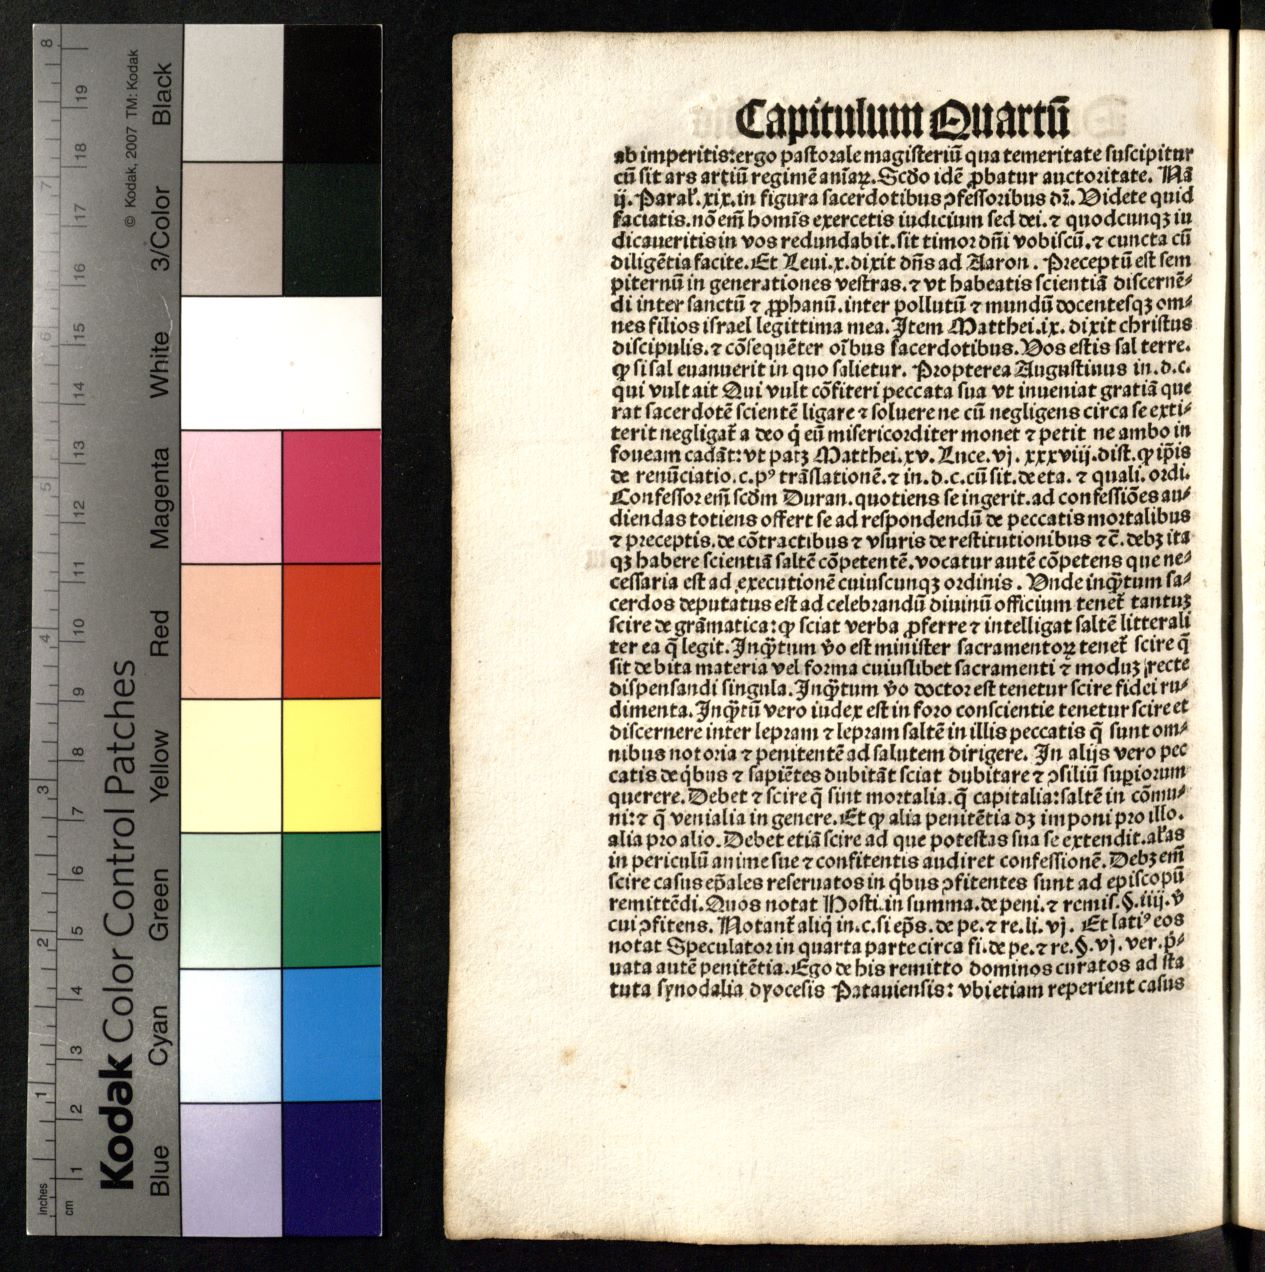 © Kodak, 2007 TM: Kodak
Kodak Color Control Patches
Blue Cyan Green Yellow Red Magenta White 3/Color Black
inches 1 2 3 4 5 6 7 8
cm 1 2 3 4 5 6 7 8 9 10 11 12 13 14 15 16 17 18 19
Capitulum Quartū
ab imperitis:ergo pastorale magisteriū qua temeritate suscipitur
cū sit ars artiū regimē aīaꝝ. Scďo idē ꝓbatur auctoritate. Nā
ij. Paraľ. xix. in figura sacerdotibus ꝯfessoribus dr̄. Videte quid
faciatis. nō em̄ homīs exercetis iudicium sed dei. ⁊ quodcunqꝫ iu
dicaueritis in vos redundabit. sit timor dn̄i vobiscū. ⁊ cuncta cū
diligētia facite. Et Leui. x. dixit dn̄s ad Aaron. Preceptū est sem
piternū in generationes vestras. ⁊ vt habeatis scientiā discernē⸗
di inter sanctū ⁊ ꝓphanū. inter pollutū ⁊ mundū docentesqꝫ om⸗
nes filios israel legittima mea. Item Matthei. ix. dixit christus
discipulis. ⁊ cōsequēter oībus sacerdotibus. Vos estis sal terre.
ꝙ si sal euanuerit in quo salietur. Propterea Augustinus in. d. c.
qui vult ait Qui vult cōfiteri peccata sua vt inueniat gratiā que
rat sacerdotē scientē ligare ⁊ soluere ne cū negligens circa se exti⸗
terit negligat̄ a deo q̇ eū misericorditer monet ⁊ petit ne ambo in
foueam cadāt: vt patꝫ Matthei. xv. Luce. vj. xxxviij. dist. ꝙ ip̄is
de renūciatio. c. pꝰ trāslationē. ⁊ in. d. c. cū sit. de eta. ⁊ quali. ordi.
Confessor em̄ scďm Duran. quotiens se ingerit. ad confessiōes au⸗
diendas totiens offert se ad respondendū de peccatis mortalibus
⁊ preceptis. de cōtractibus ⁊ vsuris de restitutionibus ⁊c̄. debꝫ ita
qꝫ habere scientiā saltē cōpetentē. vocatur autē cōpetens que ne⸗
cessaria est ad executionē cuiuscunqꝫ ordinis. Vnde inqͣtum sa⸗
cerdos deputatus est ad celebrandū diuinū officium tenet̄ tantuꝫ
scire de grāmatica: ꝙ sciat verba ꝓferre ⁊ intelligat saltē litterali
ter ea q̄ legit. Inqͣtum v̊o est minister sacramentoꝝ tenet̄ scire q̄
sit debita materia vel forma cuiuslibet sacramenti ⁊ moduꝫ recte
dispensandi singula. Inqͣtum v̊o doctor est tenetur scire fidei ru⸗
dimenta. Inqͣtū vero iudex est in foro conscientie tenetur scire et
discernere inter lepram ⁊ lepram saltē in illis peccatis q̄ sunt om⸗
nibus notoria ⁊ penitentē ad salutem dirigere. In alijs vero pec
catis de q̇bus ⁊ sapiētes dubitāt sciat dubitare ⁊ ꝯsiliū suꝑiorum
querere. Debet ⁊ scire q̄ sint mortalia. q̄ capitalia: saltē in cōmu⸗
ni: ⁊ q̄ venialia in genere. Et ꝙ alia penitētia dꝫ imponi pro illo.
alia pro alio. Debet etiā scire ad que potestas sua se extendit. aľas
in periculū anime sue ⁊ confitentis audiret confessionē. Debꝫ em̄
scire casus ep̄ales reseruatos in q̇bus ꝯfitentes sunt ad episcopū
remittēdi. Quos notat Hosti. in summa. de peni. ⁊ remis. §. iiij. v̊
cui ꝯfitens. Notant̄ aliq̇ in. c. si ep̄s. de pe. ⁊ re. li. vj. Et latiꝰ eos
notat Speculator in quarta parte circa fi. de pe. ⁊ re. §. vj. ver. p̱⸗
uata autē penitētia. Ego de his remitto dominos curatos ad sta
tuta synodalia dyocesis Patauiensis: vbi etiam reperient casus